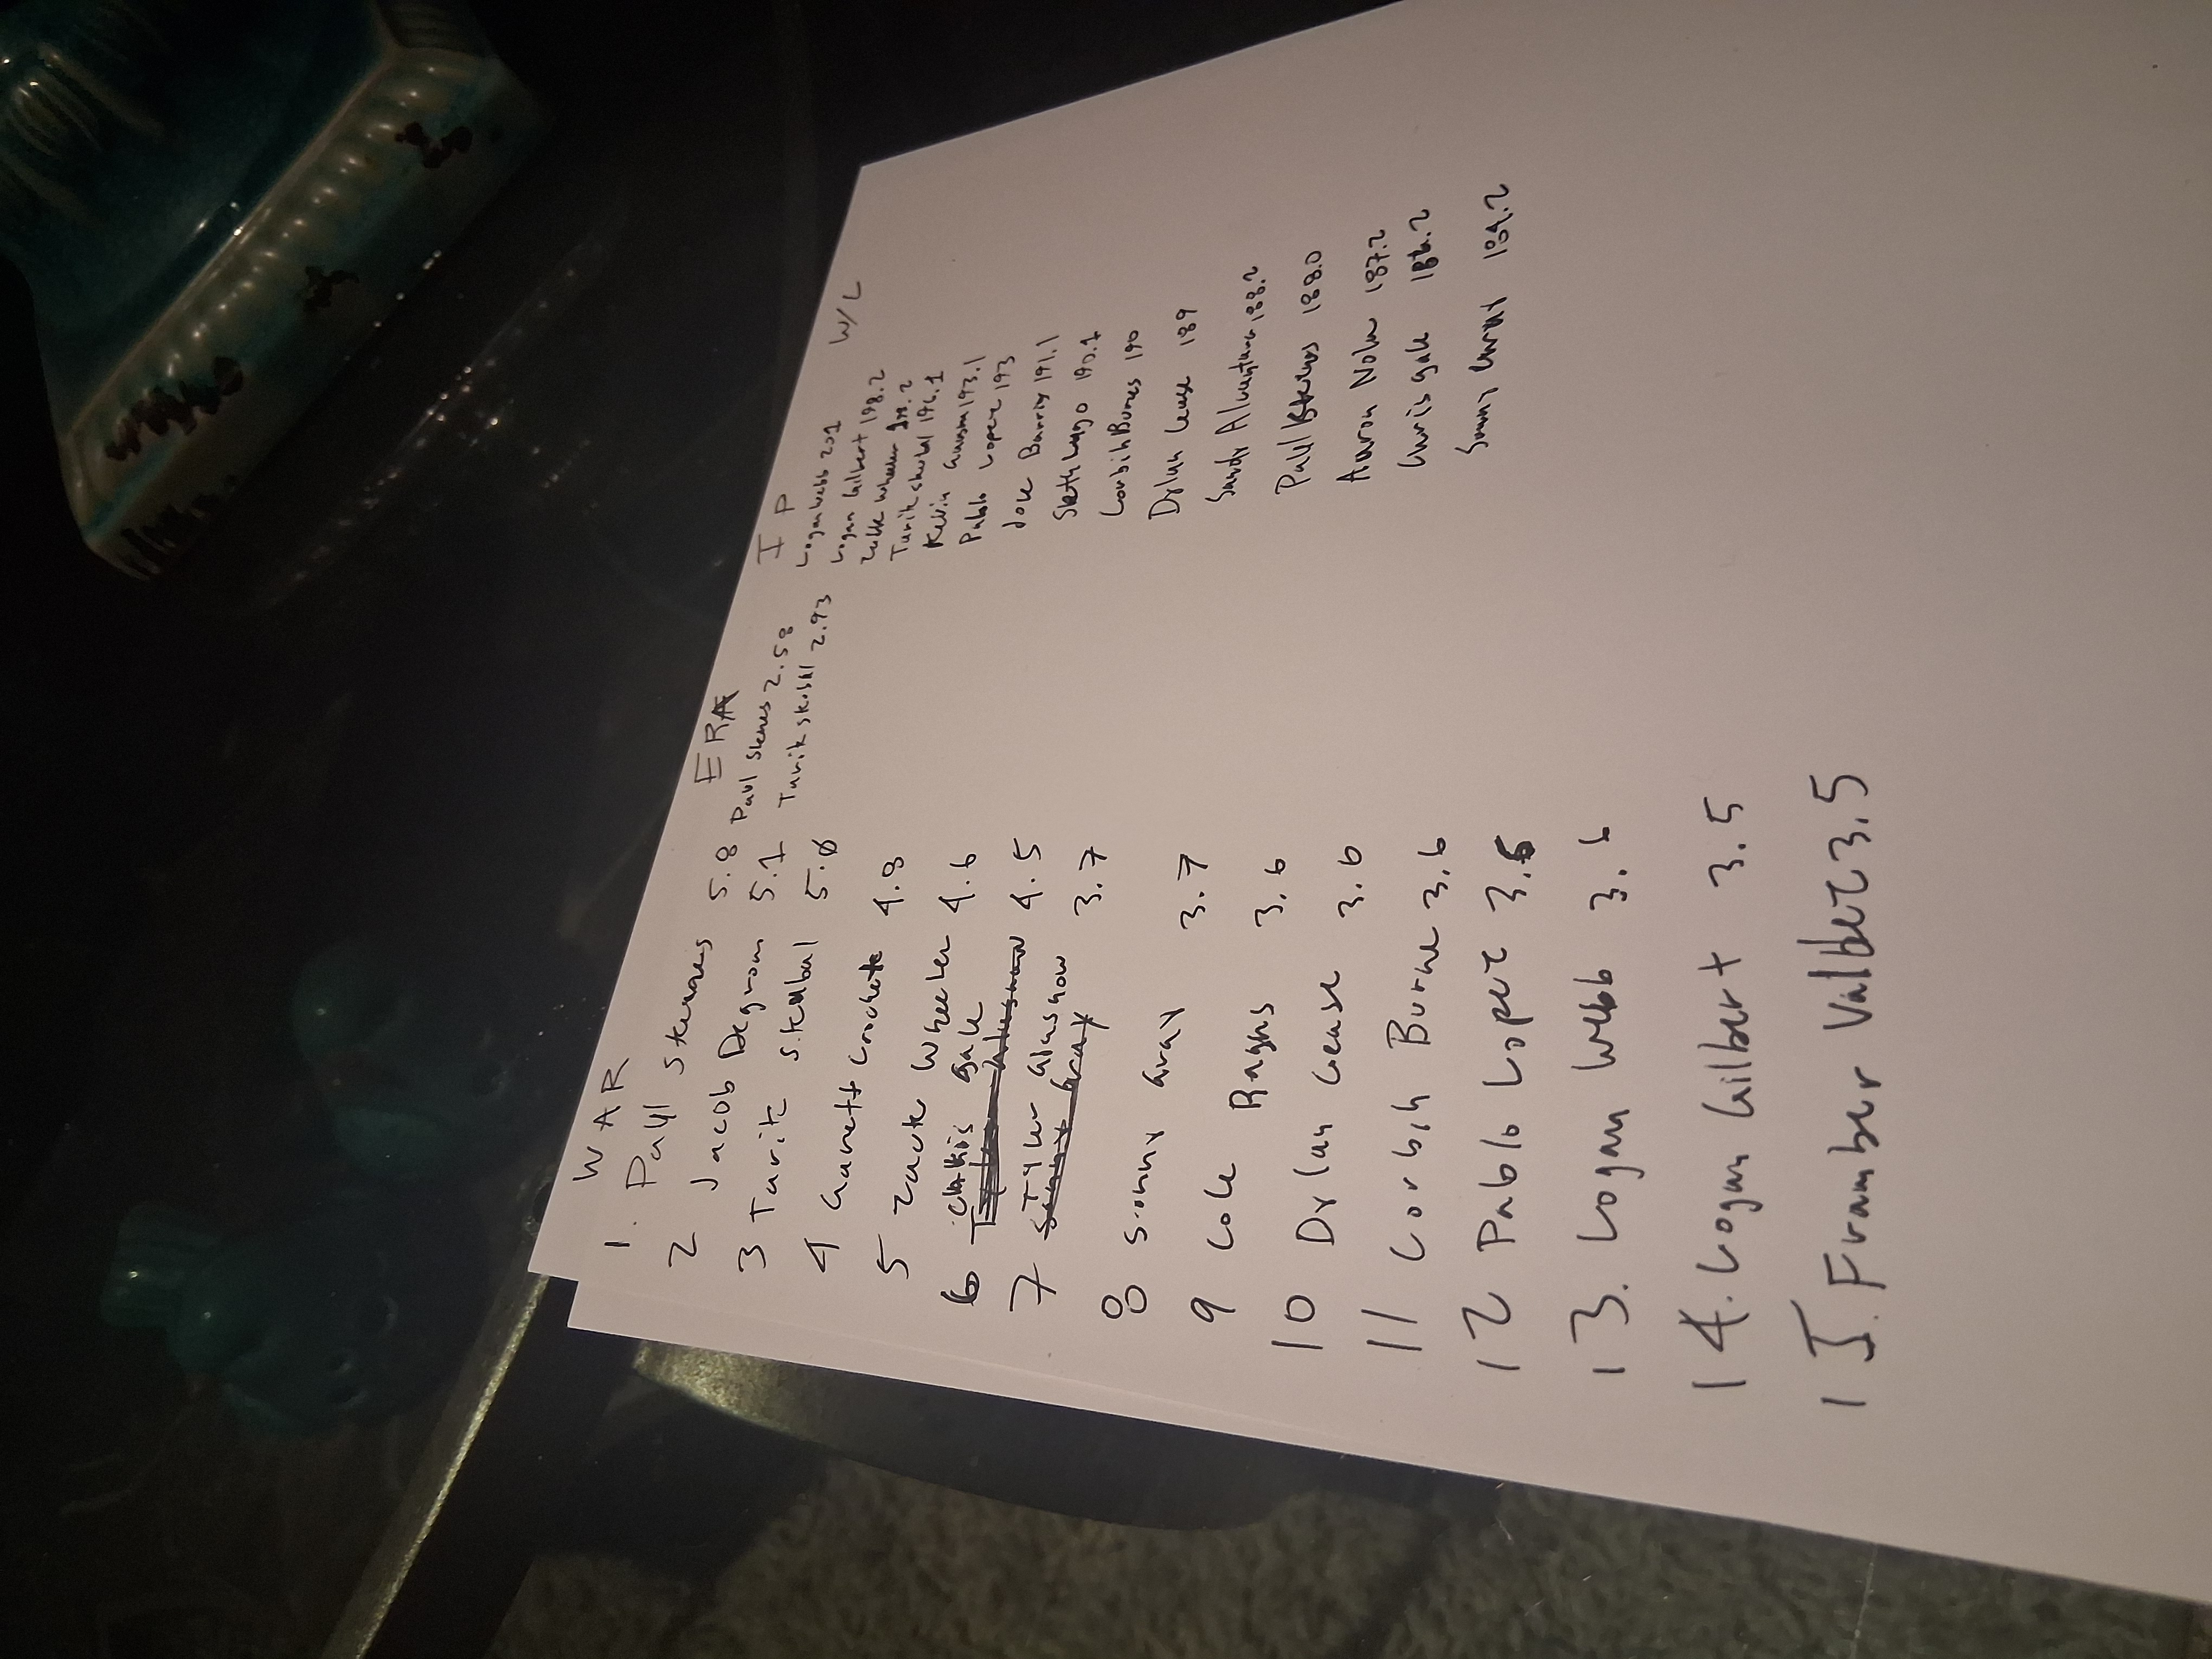 WAR
1. Paul Skenes 5.8
2 Jacob Degrom 5.1
3 Tarik Skubal 5.0
4 Garrett Crochet 4.8
5 Zack Wheeler 4.6
6 Chris Sale 4.5
7 Tyler Glasnow 3.7
8 Sonny Gray 3.7
9 Cole Ragans 3.6
10 Dylan Cease 3.6
11 Corbin Burne 3.6
12 Pablo Lopez 3.6
13. Logan Webb 3.6
14. Logan Gilbert 3.5
15. Framber Valdez 3.5
ERA
Paul Skenes 2.58
Tarik Skubal 2.93
IP
Logan Webb 201
Logan Gilbert 198.2
Zack Wheeler
Tarik Skubal 196.1
Kevin Gausman 193.1
Pablo Lopez 193
Jose Berrios 191.1
Seth Lugo 190.1
Corbin Burnes 190
Dylan Cease 189
Sandy Alcantara 188.2
Paul Skenes 188.0
Aaron Nola 187.2
Chris Sale 186.2
Sonny Gray 184.2
W/L